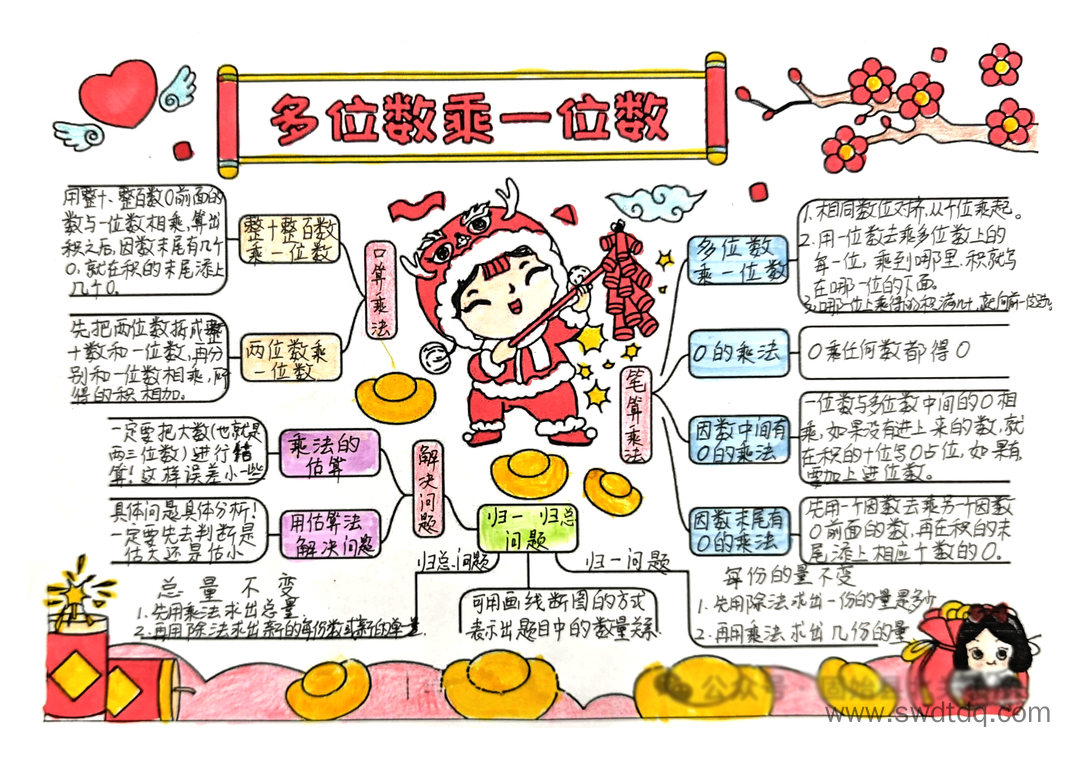 多位数乘一位数
用整十、整百数0前面的
数与一位数相乘,算出
积之后,因数末尾有几个
0,就在积的末尾添上
几个0。
整十整百数
乘一位数
口算乘法
先把两位数拆成整
十数和一位数,再分
别和一位数相乘,所
得的积相加。
两位数乘
一位数
一定要把大数(也就是
两三位数)进行估
算!这样误差小一些
乘法的
估算
解决问题
具体问题具体分析!
一定要先去判断是
估大还是估小
用估算法
解决问题
归一 归总
问题
归总问题
总量不变
1.先用乘法求出总量
2.再用除法求出新的每份数或新的单量.
可用画线断图的方式
表示出题目中的数量关系.
归一问题
每份的量不变
1.先用除法求出一份的量是多少
2.再用乘法求出几份的量
笔算乘法
多位数
乘一位数
1.相同数位对齐,从个位乘起。
2.用一位数去乘多位数上的
每一位,乘到哪里.积就写
在哪一位的下面.
3.哪一位上乘得的积满几十,就向前一位进几
0的乘法
0乘任何数都得0
因数中间有
0的乘法
一位数与多位数中间的0相
乘,如果没有进上来的数,就
在积的十位写0占位,如果有
要加上进位数。
因数末尾有
0的乘法
先用一个因数去乘另一个因数
0前面的数,再在积的末
尾添上相应个数的0。
公众号·固始县
www.swdtdq.com